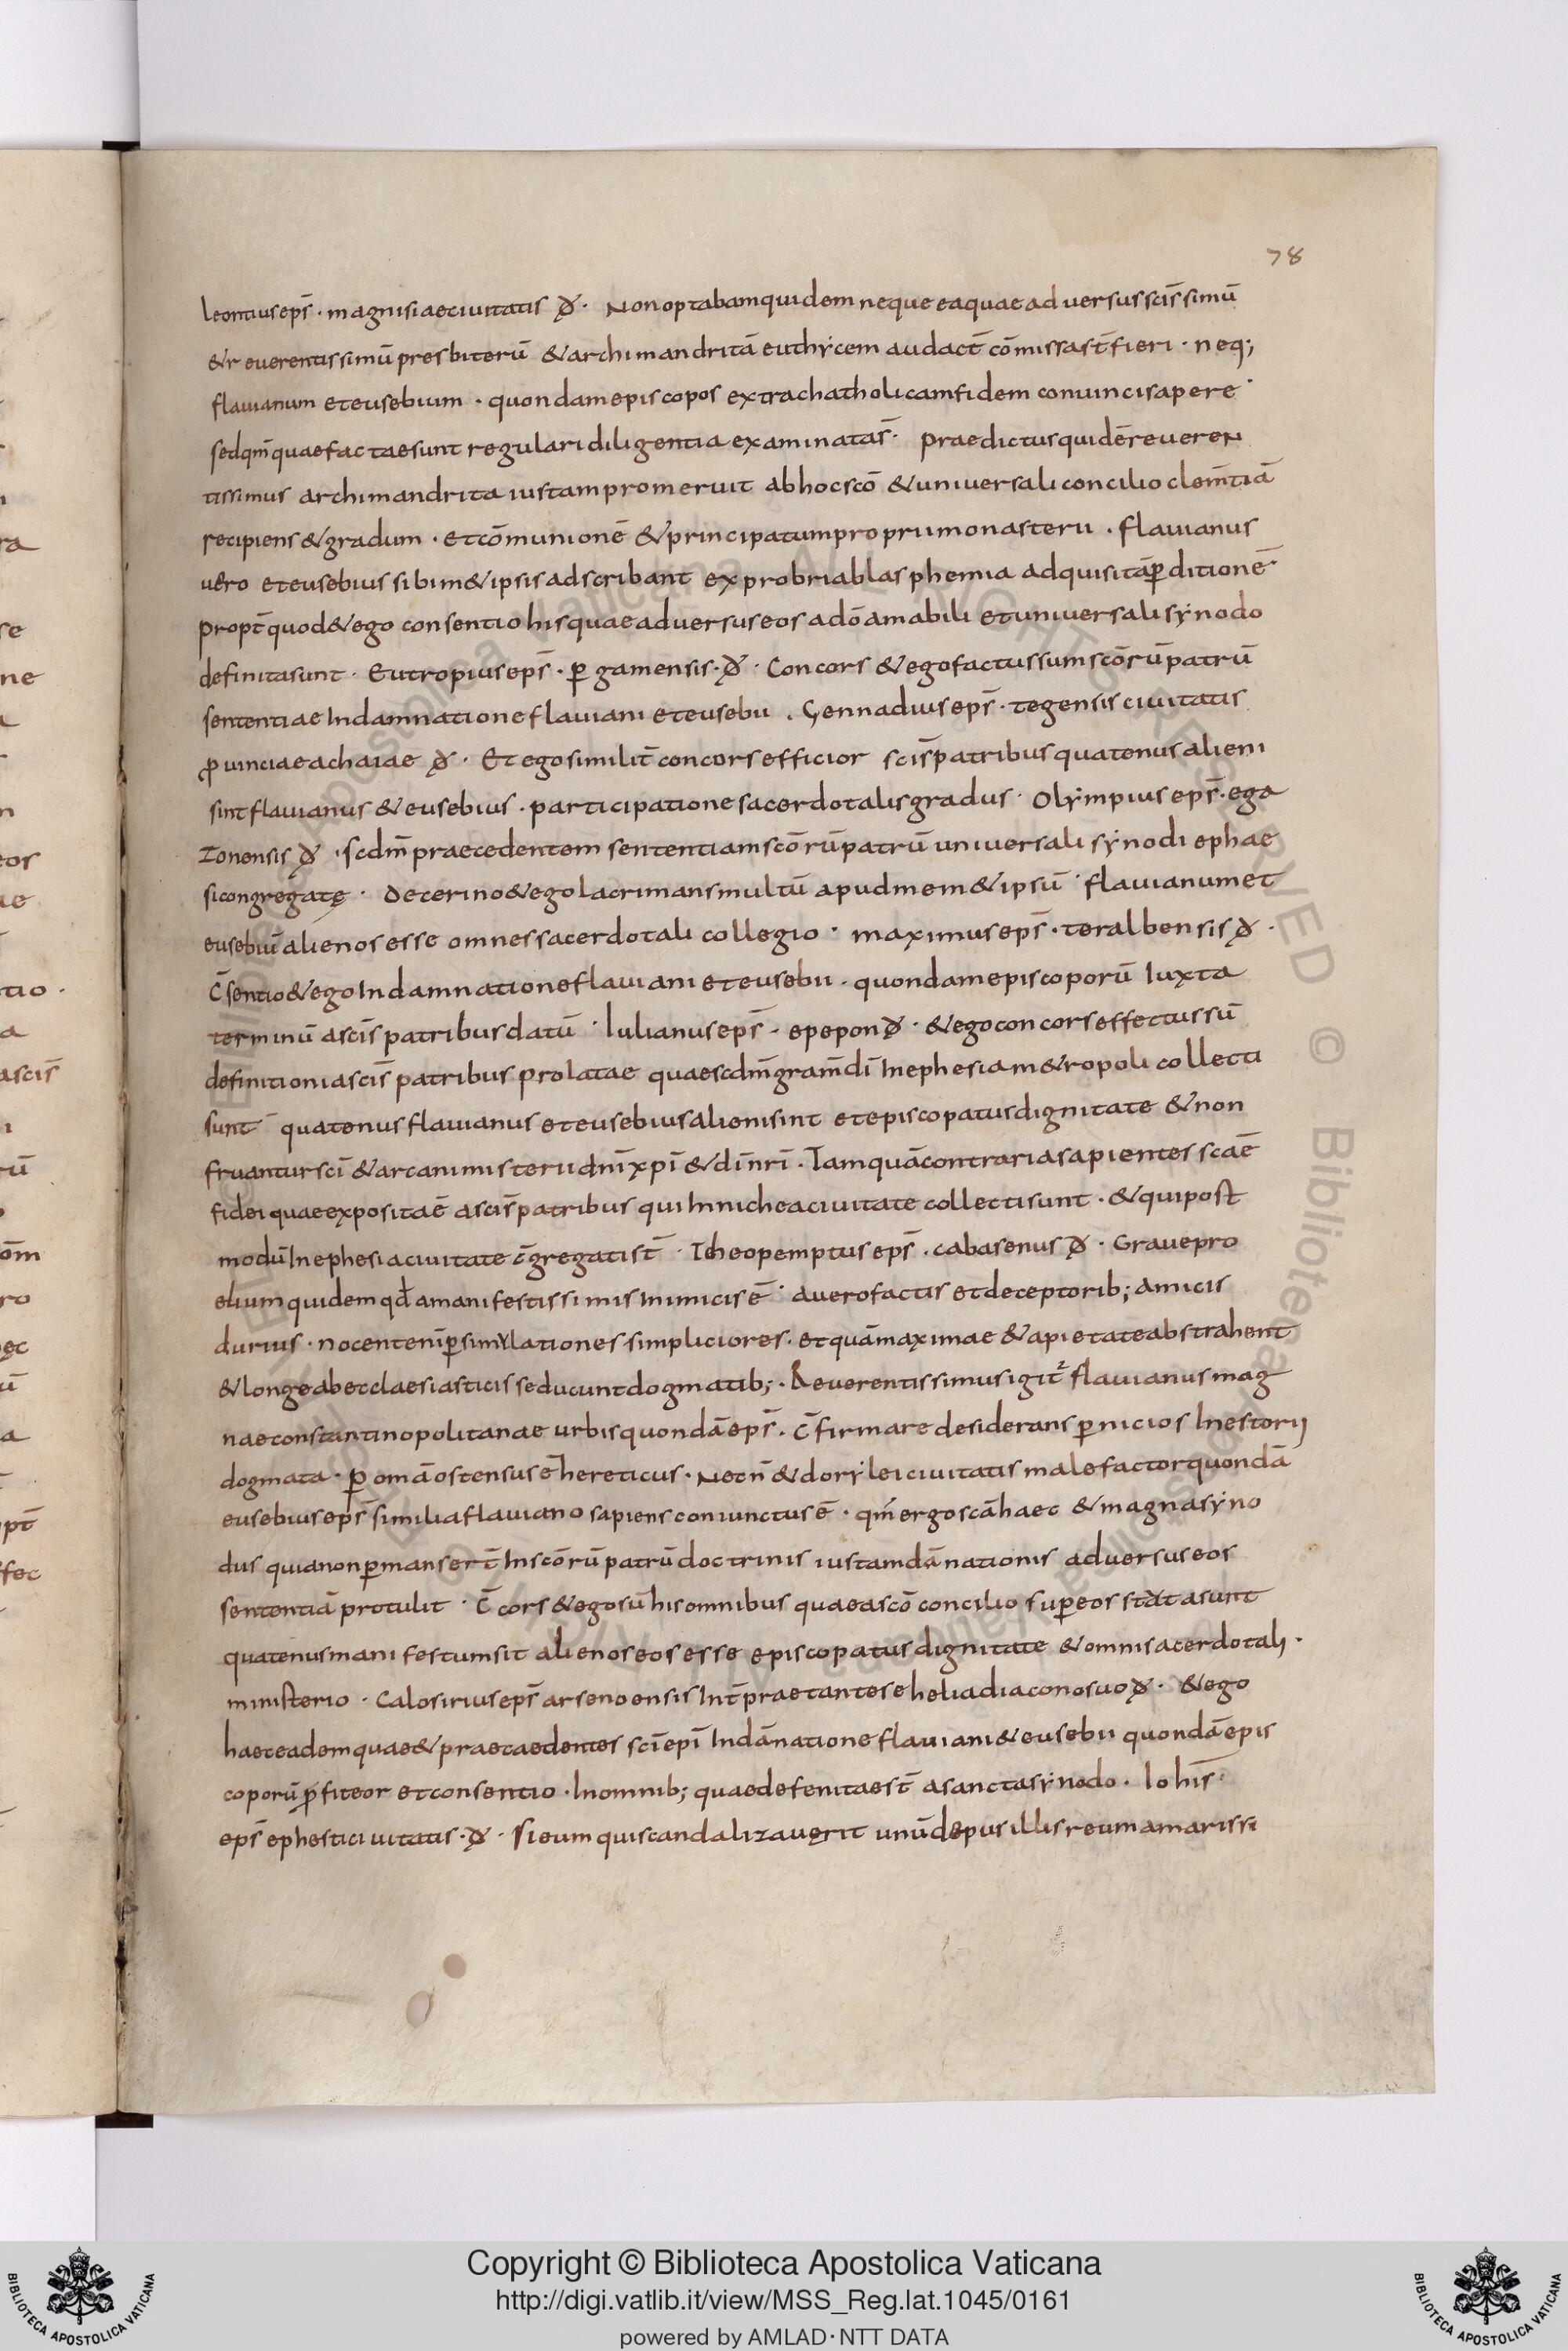 78
leontius eps̄ · magnisiae ciuitatis ꝺ̸ · Non optabam quidem neque ea quae aduersus scīssimū
& reuerentissimū presbiterū & archimandritā euthẏcem audact̄ cōmissa st̄ fieri · neq;
flauianum et eusebium · quondam episcopos extra chatholicam fidem conuinci sapere ·
sed qm̄ quae factae sunt regulari diligentia examinata s̄t · praedictus quidē reueren
tissimus archimandrita iustam promeruit ab hoc scō & uniuersali concilio clem̄tiā
recipiens & gradum · et cōmunionē & principatum proprii monasterii · flauianus
uero et eusebius sibim& ipsis adscribant exprobria blasphemia adquisitā ꝑditionē ·
propt̄ quod & ego consentio his quae aduersus eos a dō amabili et uniuersali sẏnodo
definita sunt · Eutropius eps̄ · ꝑgamensis · ꝺ̸ · Concors & ego factus sum scōrū patrū
sententiae In damnatione flauiani et eusebii · Gennadius eps̄ · tegensis ciuitatis
ꝓuinciae achaiae ꝺ̸ · Et ego similit̄ concors efficior scīs patribus quatenus alieni
sint flauianus & eusebius · participatione sacerdotalis gradus · Olẏmpius eps̄ · ega
zonensis ꝺ̸ · scdm̄ praecedentem sententiam scōrū patrū uniuersali sẏnodi ephae
si congregatę · decerino & ego lacrimans multū apud mem& ipsū · flauianum et
eusebiū alienos esse omnes sacerdotali collegio · maximus eps̄ · teralbensis ꝺ̸ ·
c̄sentio & ego In damnatione flauiani et eusebii · quondam episcoporū Iuxta
terminū a scīs patribus datū · Iulianus eps̄ · epepon ꝺ̸ · & ego concors effectus sū
definitioni a scīs patribus prolatae quae scdm̄ gram̄ dī In ephesia m&ropoli collecti
sunt quatenus flauianus et eusebius alieni sint et episcopatus dignitate & non
fruantur scī & arcani misterii dnī xpī & dī nrī · Tamquā contraria sapientes scae
fidei quae exposita ē a scīs patribus qui In nichea ciuitate collecti sunt · & qui post
modū In ephesia ciuitate c̄gregati st̄ · Theopemptus eps̄ · cabasenus ꝺ̸ · Graue pro
elium quidem qd̄ a manifestissimis Inimicis ē · a uero factis et deceptorib; amicis
durius · nocent enī ꝑ simylationes simpliciores · et quā maximae & a pietate abstrahent
& longe ab ecclaesiasticis seducunt dogmatib; · Reuerentissimus igit² flauianus mag
nae constantinopolitanae urbis quondā eps̄ · c̄firmare desiderans ꝑniciosI nestorij
dogmata · ꝑ omā ostensus ē hereticus · Necn̄ & dorẏlei ciuitatis malefactor quondā
eusebius eps̄ similia flauiano sapiens coniunctus ē · qm̄ ergo scā haec & magna sẏno
dus quia non ꝑmansert̄ In scōrū patrū doctrinis iustam dānationis aduersus eos
sententiā protulit · c̄cors & ego sū his omnibus quae a scō concilio suꝑ eos statuta sunt
quatenus manifestum sit alienos eos esse episcopatus dignitate & omni sacerdotali ·
ministerio · Calosirius eps̄ arsenoensis Int̄praetante se helia diacono suo ꝺ̸ · & ego
haec eadem quae & praecaedentes scī epī In dānatione flauiani & eusebii quondā epis
coporū ꝓfiteor et consentio · In omnib; quae defenita est̄ a sancta sẏnodo · Iohīs ·
eps̄ ephesti ciuitatis · ꝺ̸ · Si eum qui scandalizauerit unū de pusillis reum amarissi
Copyright © Biblioteca Apostolica Vaticana
http://digi.vatlib.it/view/MSS_Reg.lat.1045/0161
powered by AMLAD·NTT DATA